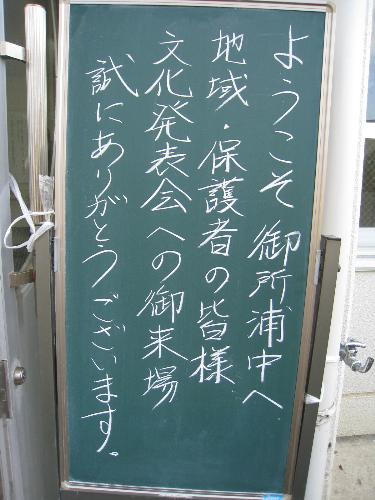 ようこそ御所浦中へ
地域・保護者の皆様
文化発表会への御来場
誠にありがとうございます。